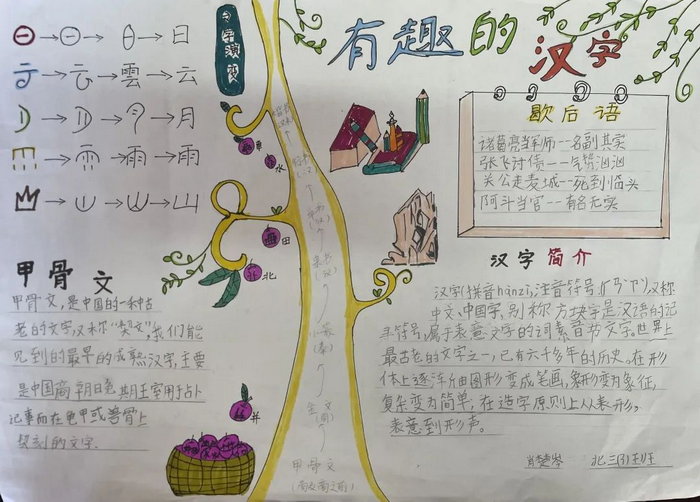 有趣的汉字
文字演变
日
雲→云
月
雨→雨
山
歇后语
诸葛亮当军师--名副其实
张飞讨债--气势汹汹
关公走麦城--死到临头
阿斗当官--有名无实
水
田
北
井
甲骨文
甲骨文,是中国的一种古
老的文字,又称“契文”,我们能
见到的最早的成熟汉字,主要
是中国商朝晚期王室用于占卜
记事而在龟甲或兽骨上
契刻的文字.
小篆
(秦)
金文
(周)
甲骨文
汉字简介
汉字(拼音hànzì,注音符号
中文、中国字,别称方块字是汉语的记
号符号,属于表意文字的词素音节文字。世界上
最古老的文字之一,已有六千多年的历史。在形
体上逐渐由图形变成笔画,象形变为象征,
复杂变为简单;在造字原则上从表形,
表意到形声。
肖楚岑 北三(3)班